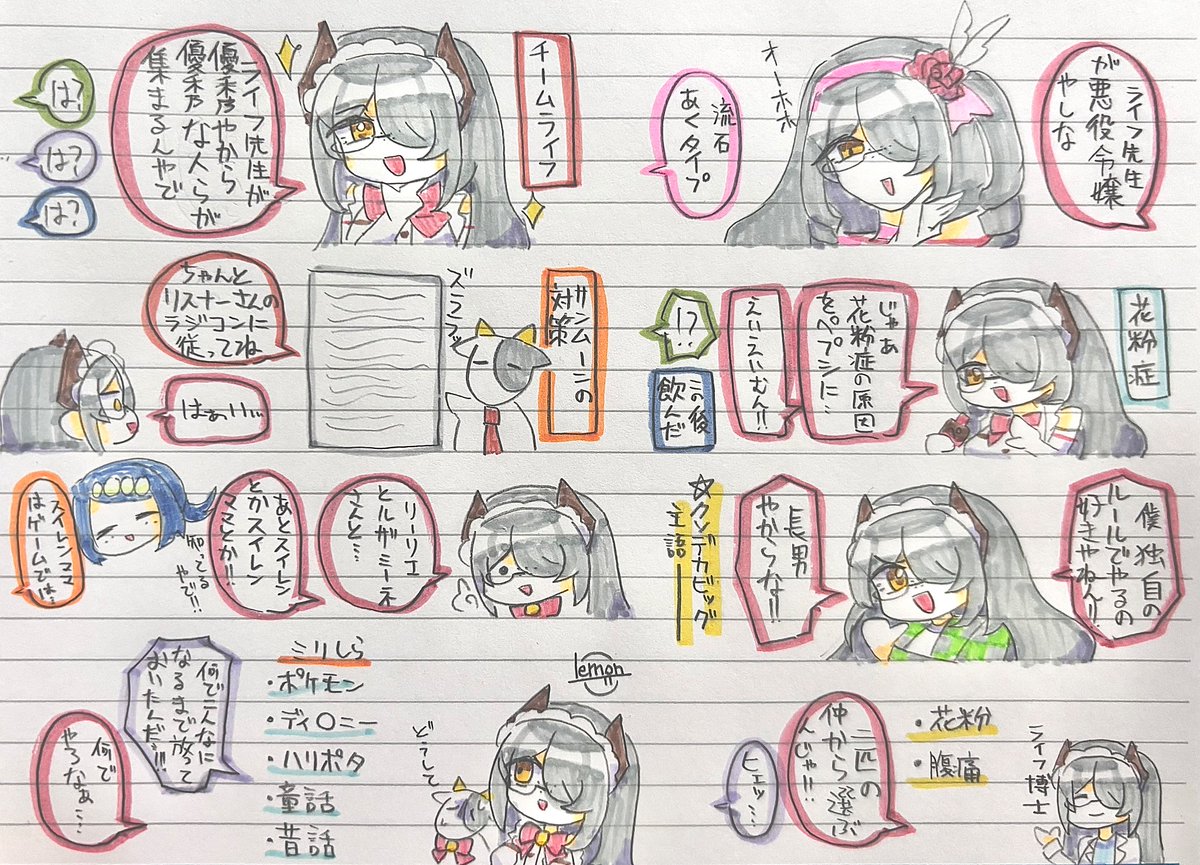 ライフ先生
が悪役令嬢
やしな
オーホホ
流石
あくタイプ
チームライフ
ライフ先生が
優秀やから
優秀な人らが
集まるんやで
は?
は?
は?
花粉症
じゃあ
花粉症の原因
をペプシに…
えいえいむん!!
!?
この後
飲んだ
サンムーンの
対策
ズラァッ
ちゃんと
リスナーさんの
ラジコンに
従ってね
はぁい…
僕独自の
ルールでやるの
好きやねん!!
長男
やからな!!
☆クソデカビッグ
主語
リーリエ
とルザミーネ
さんと…
あとスイレン
とかスイレン
ママとか!!
知ってる
やで!!
スイレンママ
はゲームでは…
ライフ博士
・花粉
・腹痛
二匹の
仲から選ぶ
んじゃ!!
ヒェッ…
lemon
どてして
ミリしら
・ポケモン
・ディ〇ニー
・ハリポタ
・童話
・昔話
何でこんなに
なるまで放って
おいたんだ!!!
何で
やろなぁ…